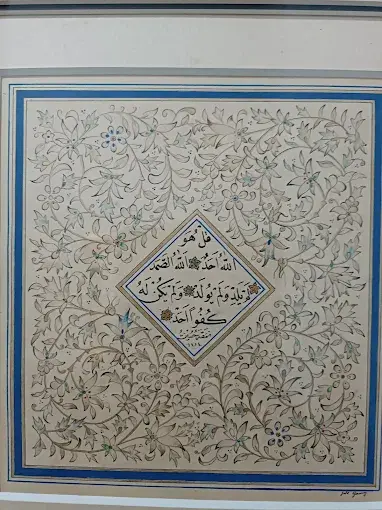 قل هو
الله أحد الله الصمد
لم يلد ولم يولد ولم يكن له
كفوا أحد